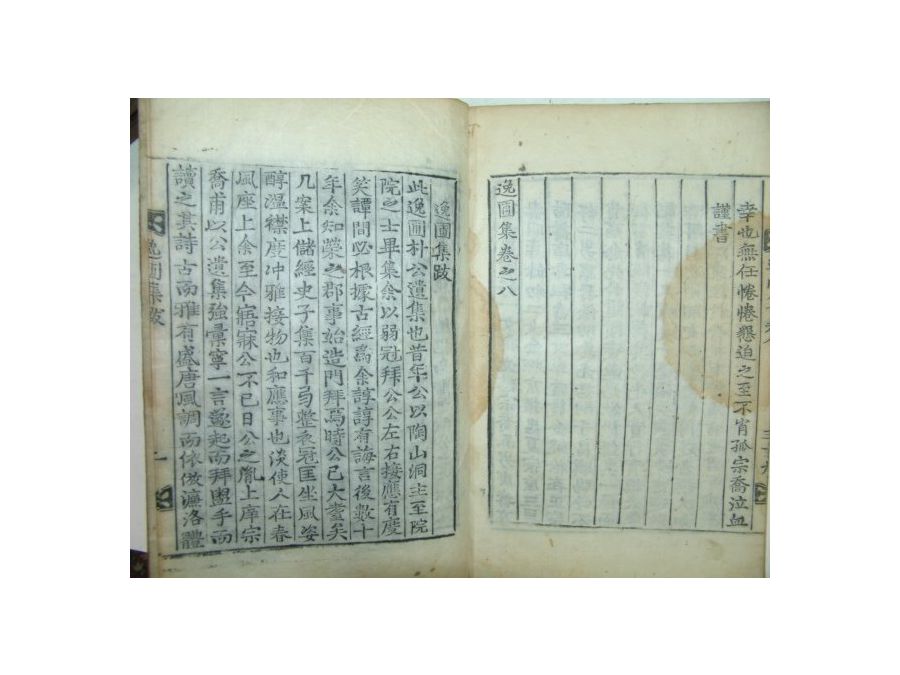 幸也無任惓惓懇迫之至不肖孤宗喬泣血
謹書
逸圃集卷之八
逸圃集跋
此逸圃朴公遺集也昔年公以陶山洞主至院
院之士畢集余以弱冠拜公公左右接應有度
笑譚間必根據古經爲余諄諄有誨言後數十
年余知榮之郡事始造門拜焉時公已大耋矣
几案上儲經史子集百千弓整衣冠匡坐風姿
醇溫襟度冲雅接物也和應事也淡使人在春
風座上余至今寤寐公不已日公之胤上庠宗
喬甫以公遺集強彙寧一言遂起而拜盥手而
讀之其詩古而雅有盛唐風調而依倣濂洛體
逸圃集跋
一